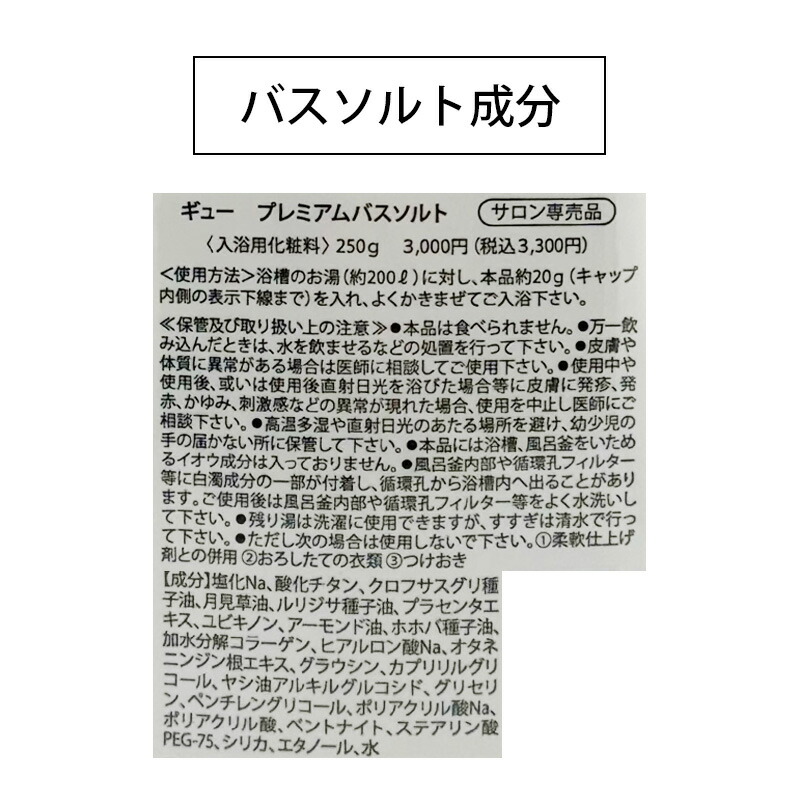 バスソルト成分
ギュー　プレミアムバスソルト　サロン専売品
〈入浴用化粧料〉250g　3,000円(税込3,300円)
＜使用方法＞浴槽のお湯(約200ℓ)に対し、本品約20g(キャップ
内側の表示下線まで)を入れ、よくかきまぜてご入浴下さい。
≪保管及び取り扱い上の注意≫●本品は食べられません。●万一飲
み込んだときは、水を飲ませるなどの処置を行って下さい。●皮膚や
体質に異常がある場合は医師に相談してご使用下さい。●使用中や
使用後、或いは使用後直射日光を浴びた場合等に皮膚に発疹、発
赤、かゆみ、刺激感などの異常が現れた場合、使用を中止し医師にご
相談下さい。●高温多湿や直射日光のあたる場所を避け、幼少児の
手の届かない所に保管して下さい。●本品には浴槽、風呂釜をいため
るイオウ成分は入っておりません。●風呂釜内部や循環孔フィルター
等に白濁成分の一部が付着し、循環孔から浴槽内へ出ることがあり
ます。ご使用後は風呂釜内部や循環孔フィルター等をよく水洗いし
て下さい。●残り湯は洗濯に使用できますが、すすぎは清水で行っ
て下さい。●ただし次の場合は使用しないで下さい。①柔軟仕上げ
剤との併用 ②おろしたての衣類 ③つけおき
【成分】塩化Na、酸化チタン、クロフサスグリ種
子油、月見草油、ルリジサ種子油、プラセンタエ
キス、ユビキノン、アーモンド油、ホホバ種子油、
加水分解コラーゲン、ヒアルロン酸Na、オタネ
ニンジン根エキス、グラウシン、カプリリルグリ
コール、ヤシ油アルキルグルコシド、グリセリ
ン、ペンチレングリコール、ポリアクリル酸Na、
ポリアクリル酸、ベントナイト、ステアリン酸
PEG-75、シリカ、エタノール、水